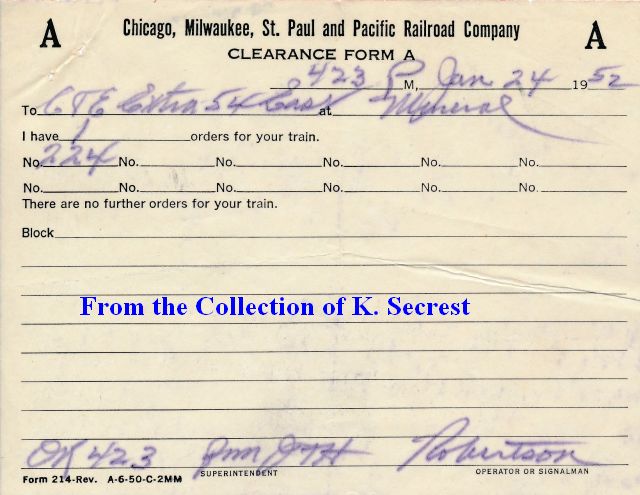 A Chicago, Milwaukee, St. Paul and Pacific Railroad Company A
CLEARANCE FORM A
423 P M, Jan 24 1952
To C&E Extra 54 East at Mineral
I have 1 orders for your train.
No. 224 No. No. No. No. No.
No. No. No. No. No. No.
There are no further orders for your train.
Block
From the Collection of K. Secrest
OK 423 Pm JTH Robertson
SUPERINTENDENT OPERATOR OR SIGNALMAN
Form 214-Rev. A-6-50-C-2MM